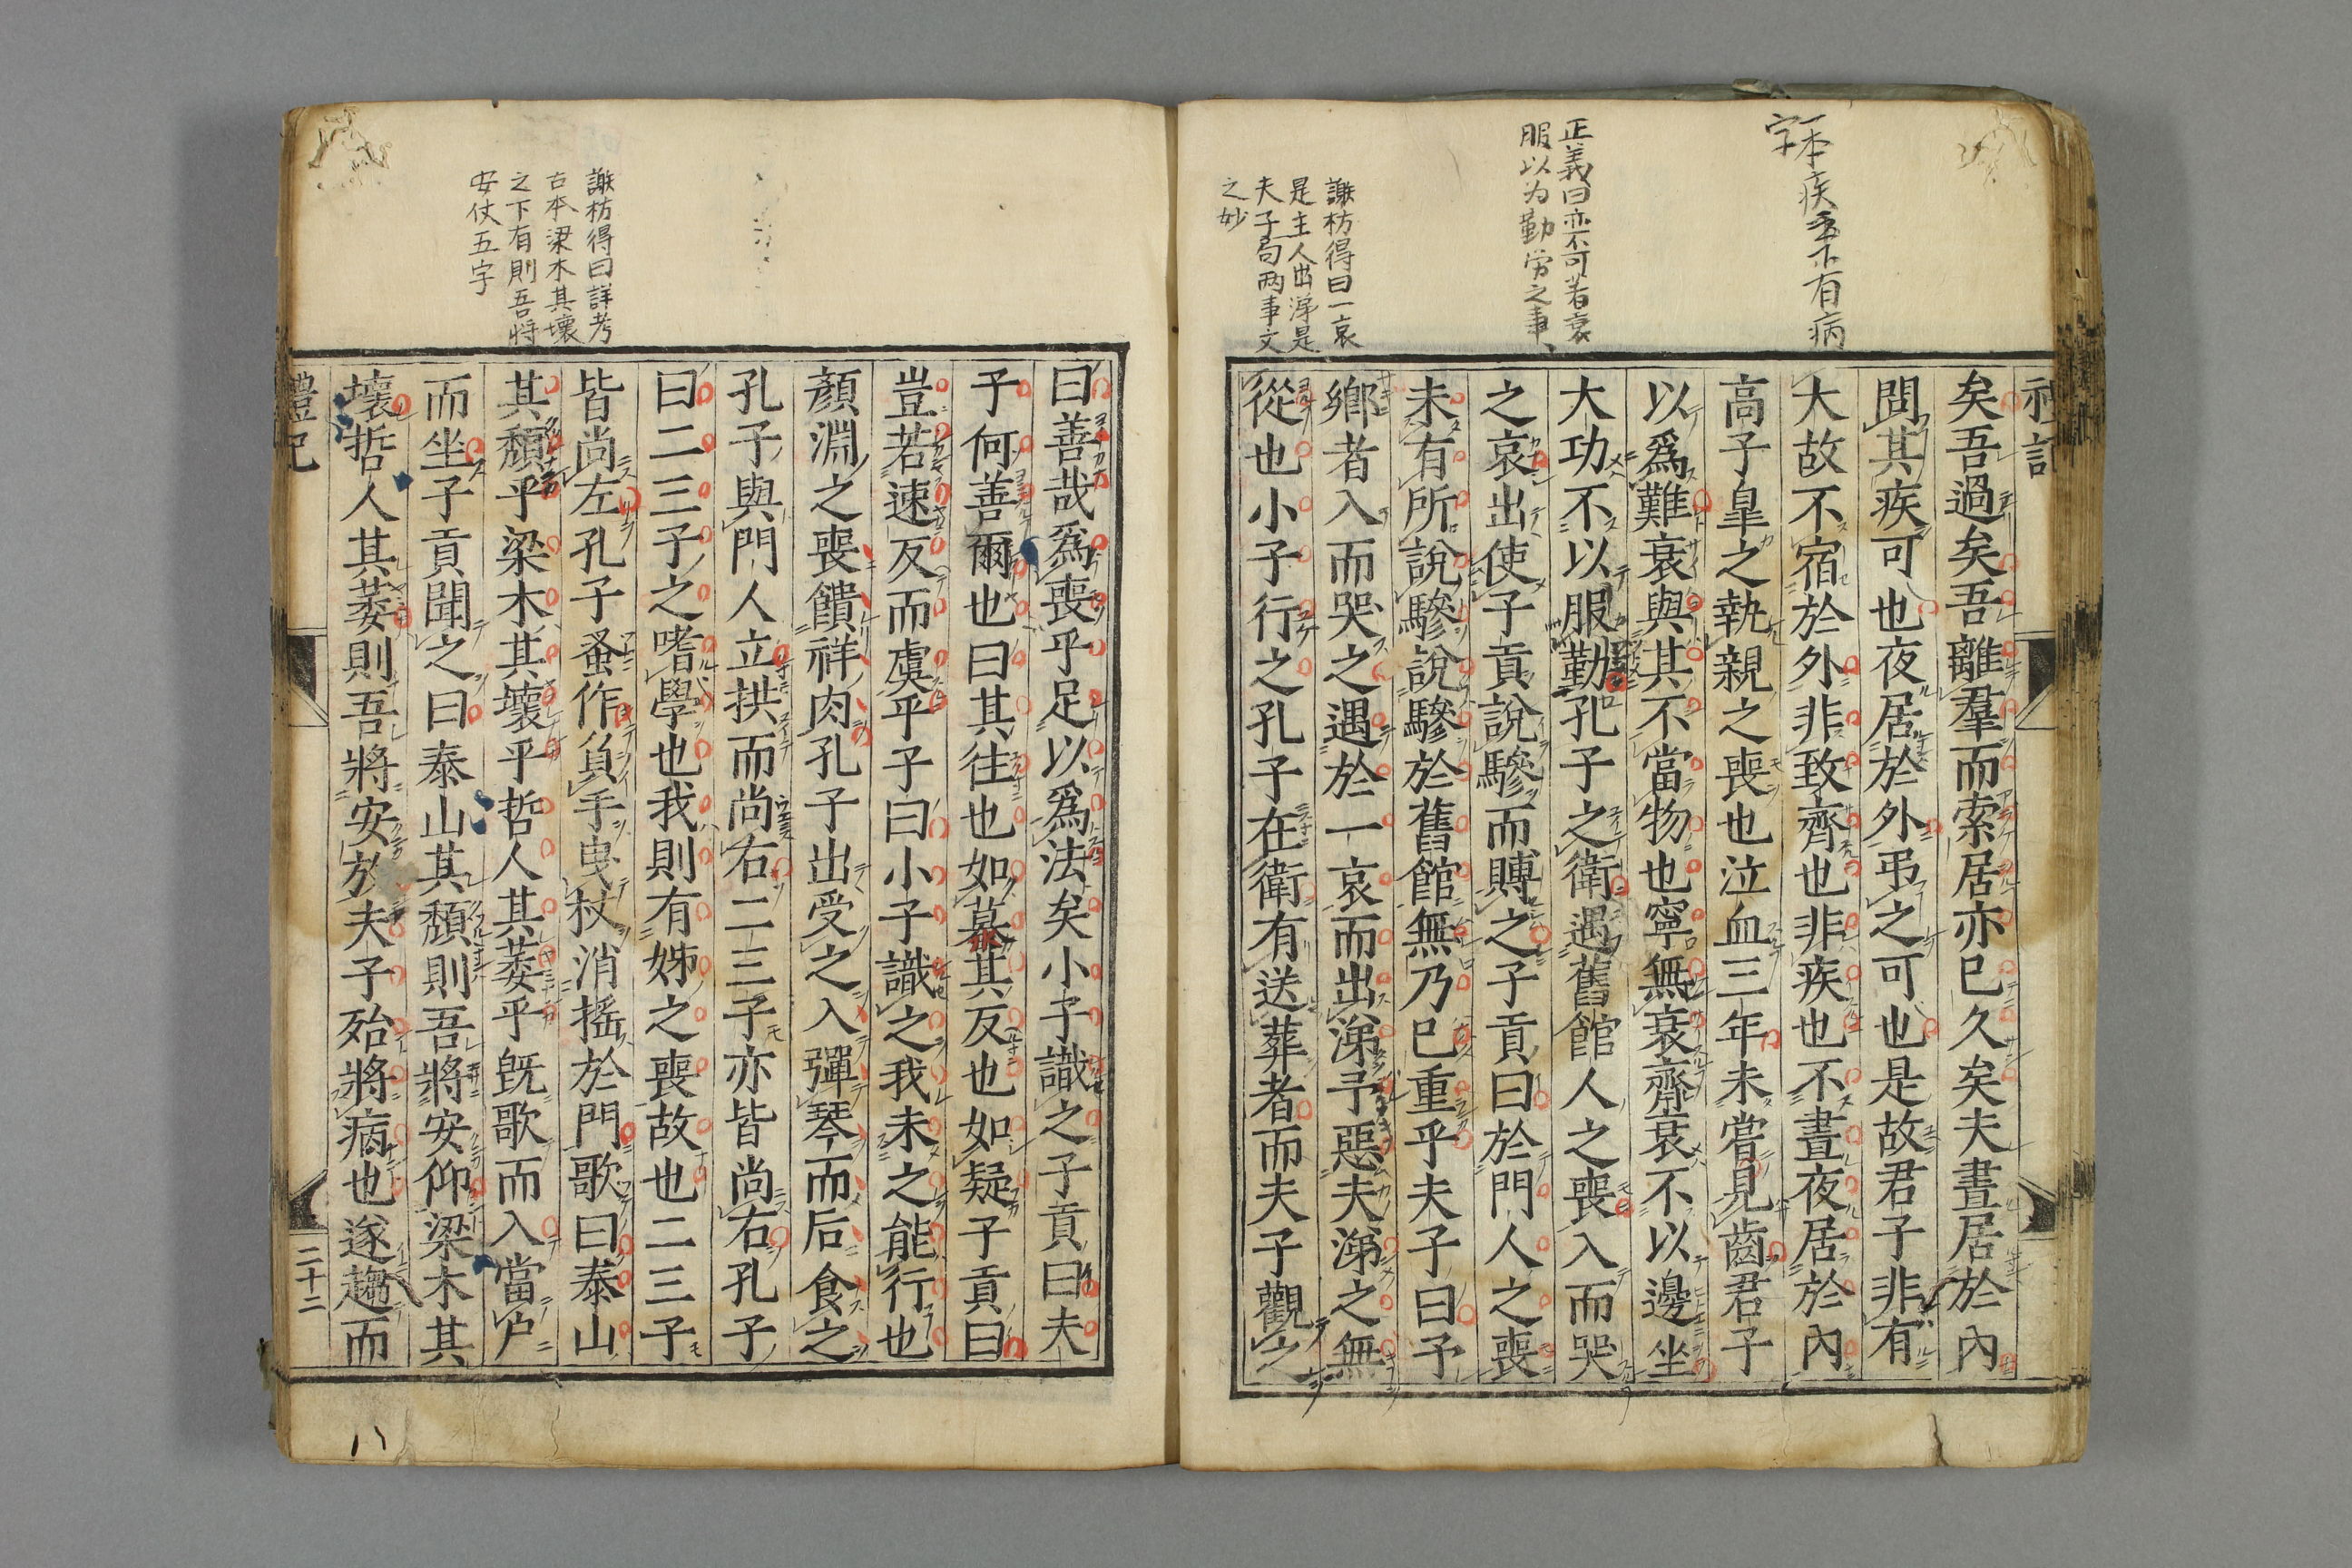 一本疾重下有病
字
正義曰亦不可著衰
服以为勤労之事
謝枋得曰一哀
是主人出涕是
夫子句两事文
之妙
矣吾過矣吾離羣而索居亦已久矣夫晝居於內
問其疾可也夜居於外弔之可也是故君子非有
大故不宿於外非致齊也非疾也不晝夜居於內
高子皐之執親之喪也泣血三年未嘗見齒君子
以爲難衰與其不當物也寧無衰齊衰不以邊坐
大功不以服勤孔子之衛遇舊館人之喪入而哭
之哀出使子貢說驂而賻之子貢曰於門人之喪
未有所說驂說驂於舊館無乃已重乎夫子曰予
鄉者入而哭之遇於一哀而出涕予惡夫涕之無
從也小子行之孔子在衛有送葬者而夫子觀之
謝枋得曰詳考
古本梁木其壞
之下有則吾将
安仗五字
曰善哉爲喪乎足以爲法矣小子識之子貢曰夫
子何善爾也曰其往也如慕其反也如疑子貢曰
豈若速反而虞乎子曰小子識之我未之能行也
顏淵之喪饋祥肉孔子出受之入彈琴而后食之
孔子與門人立拱而尚右二三子亦皆尚右孔子
曰二三子之嗜學也我則有姊之喪故也二三子
皆尚左孔子蚤作負手曳杖消搖於門歌曰泰山
其頹乎梁木其壞乎哲人其萎乎旣歌而入當户
而坐子貢聞之曰泰山其頹則吾將安仰梁木其
壞哲人其萎則吾將安放夫子殆將病也遂趨而
禮記
二十二